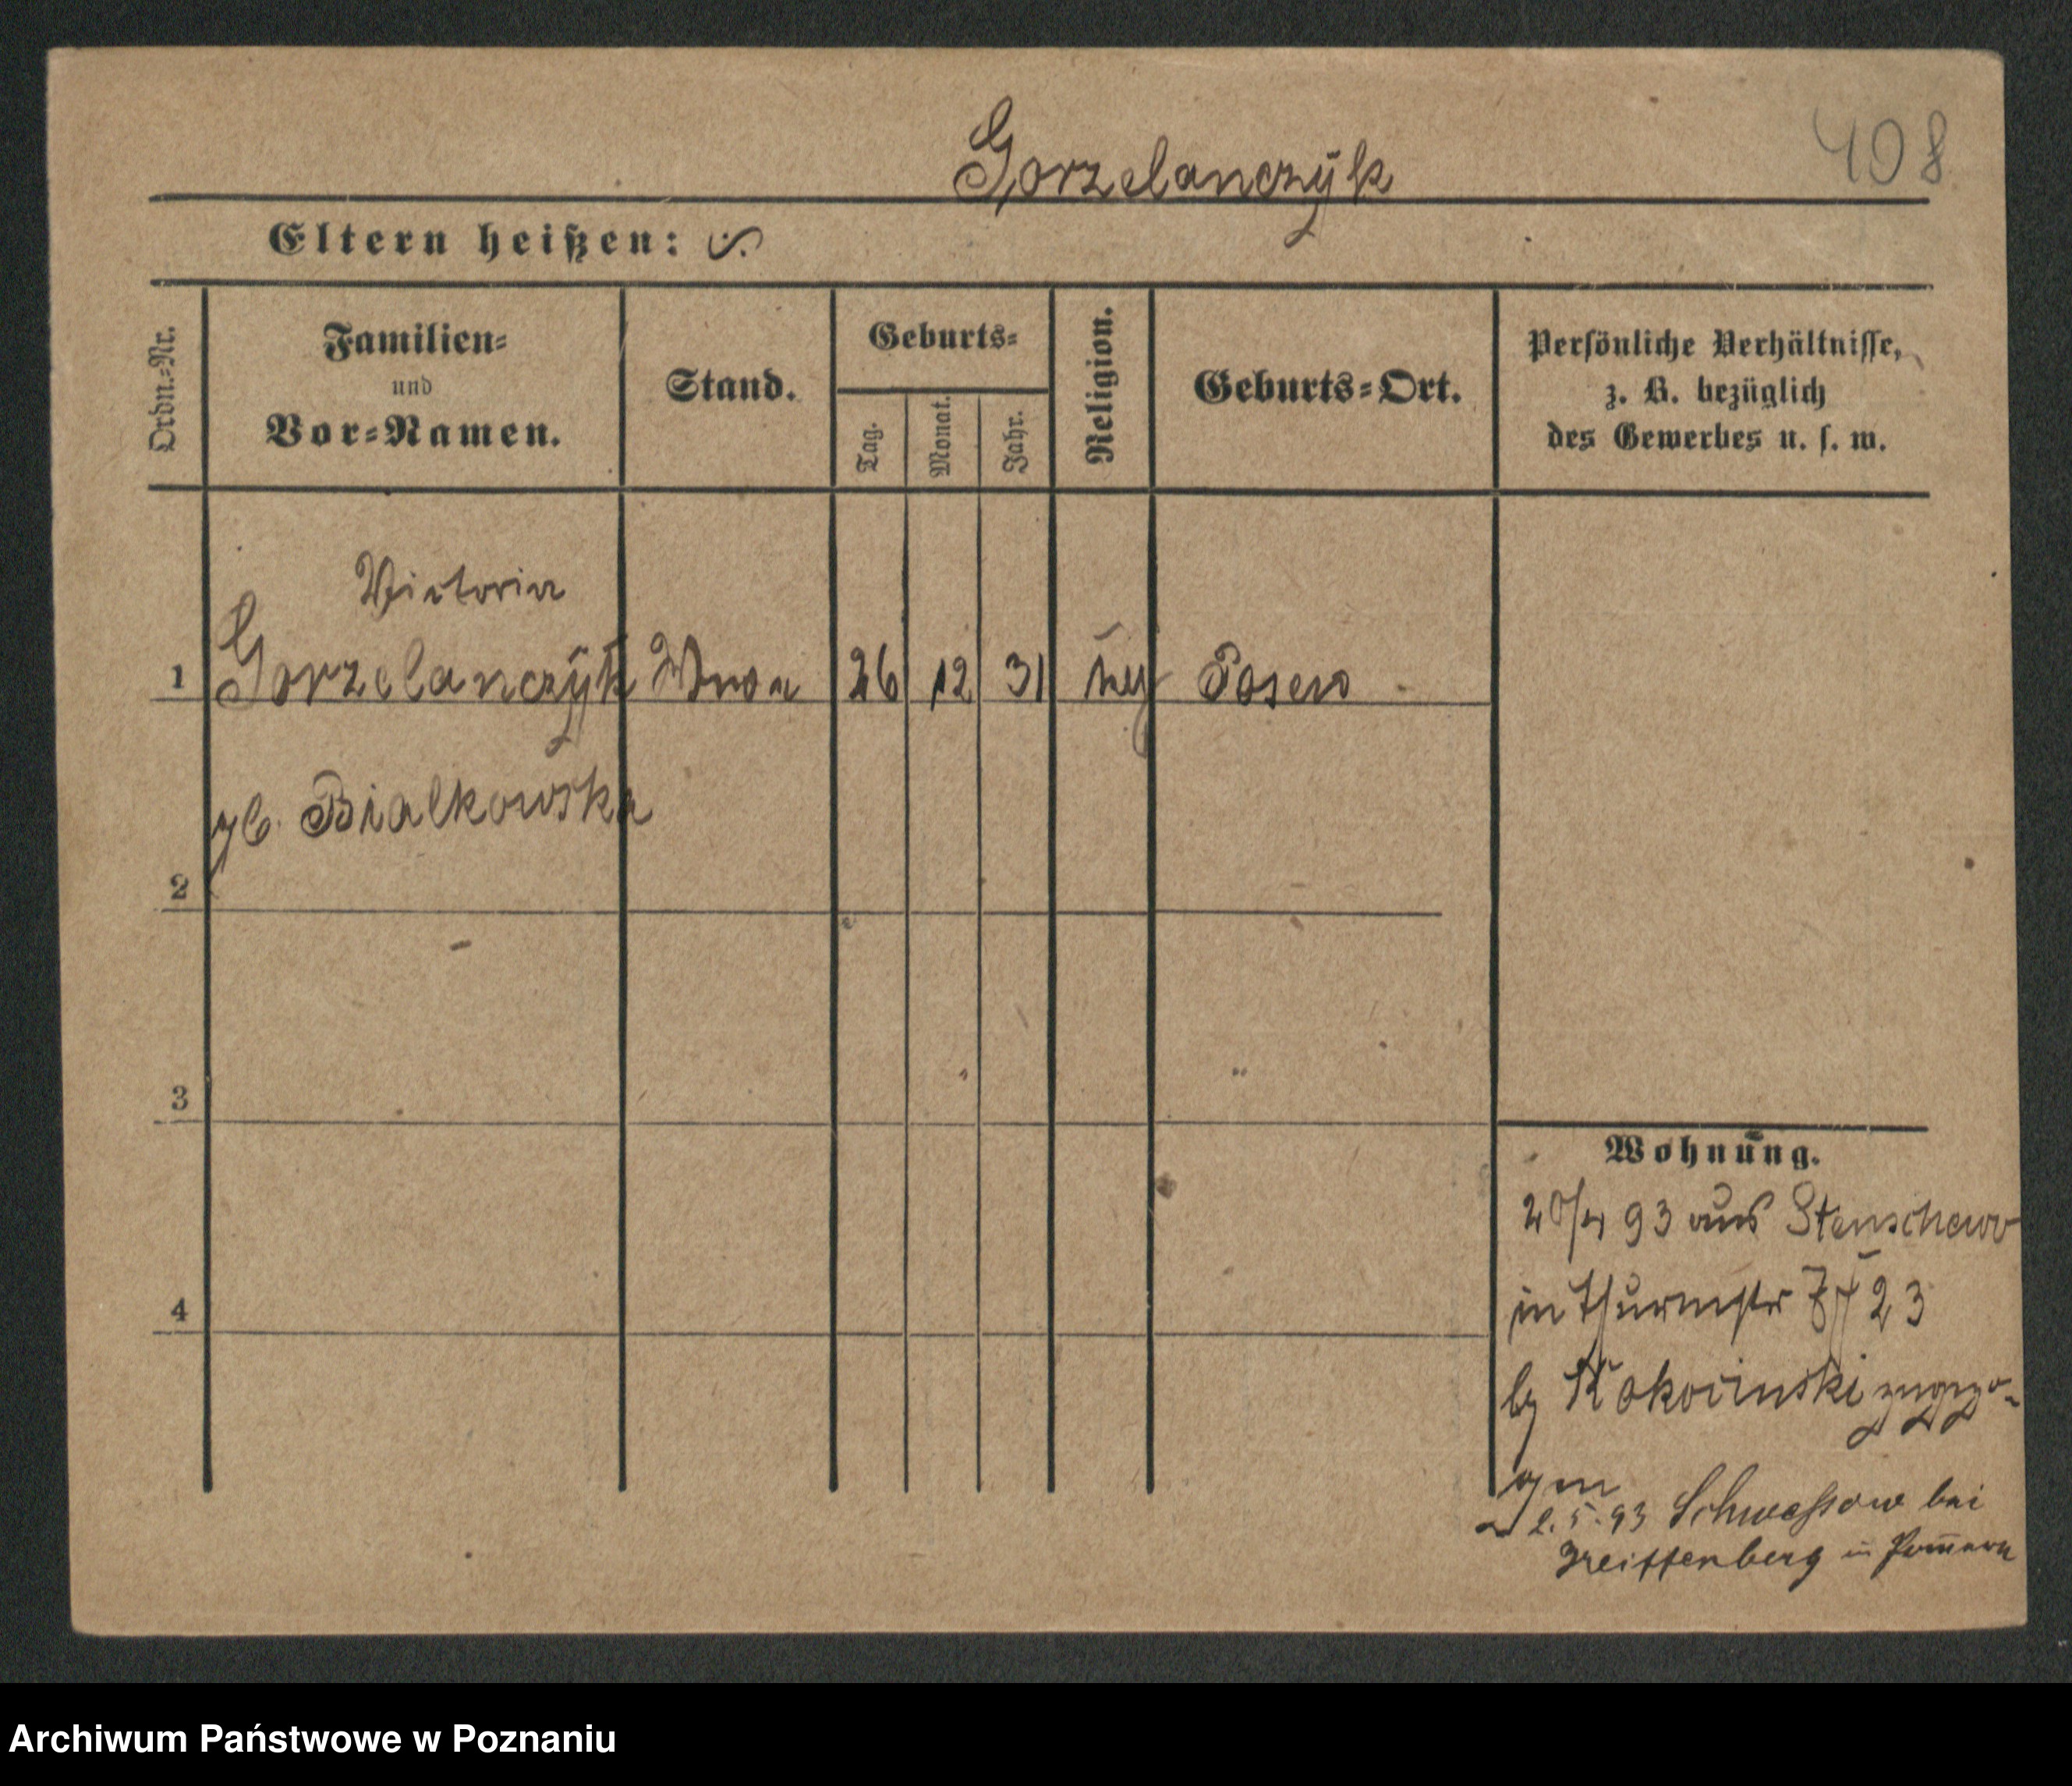 408
Gorzelanczÿk
Eltern heißen:
Ordn.-Nr.
Familien-
und
Vor-Namen.
Stand.
Geburts-
Tag.
Monat.
Jahr.
Religion.
Geburts-Ort.
Persönliche Verhältnisse,
z. B. bezüglich
des Gewerbes u. s. w.
Victoria
1 Gorzelanczÿk Wwe 26 12 31 Posen
gb. Bialkowska
2
3
4
Wohnung.
20/4 93 aus Stenschewo
in Thurmstr 23
by Kokocinski zugezo-
gen
2.5.93 Schwessow bei
Greiffenberg in Pom̅ern
Archiwum Państwowe w Poznaniu